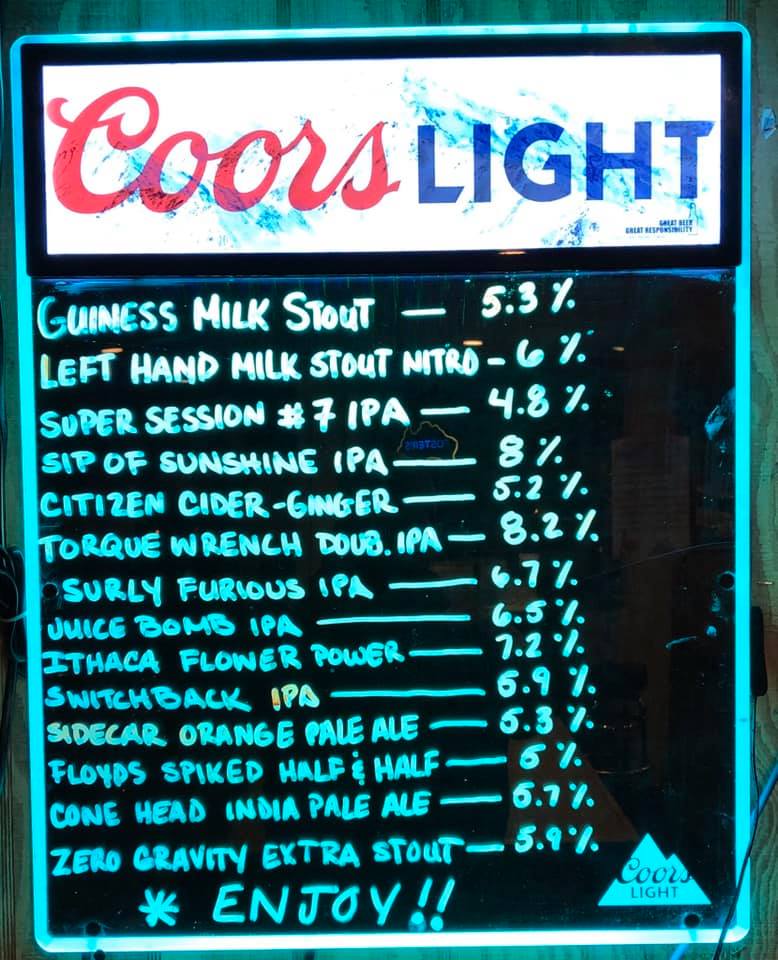 Coors LIGHT
GREAT BEER
GREAT RESPONSIBILITY
GUINESS MILK STOUT — 5.3 %
LEFT HAND MILK STOUT NITRO - 6 %
SUPER SESSION #7 IPA — 4.8 %
SIP OF SUNSHINE IPA — 8 %
CITIZEN CIDER-GINGER — 5.2 %
TORQUE WRENCH DOUB. IPA — 8.2 %
SURLY FURIOUS IPA — 6.7 %
JUICE BOMB IPA — 6.5 %
ITHACA FLOWER POWER — 7.2 %
SWITCHBACK IPA — 6.9 %
SIDECAR ORANGE PALE ALE — 5.3 %
FLOYDS SPIKED HALF & HALF — 5 %
CONE HEAD INDIA PALE ALE — 5.7 %
ZERO GRAVITY EXTRA STOUT — 5.9 %
* ENJOY!!
Coors
LIGHT